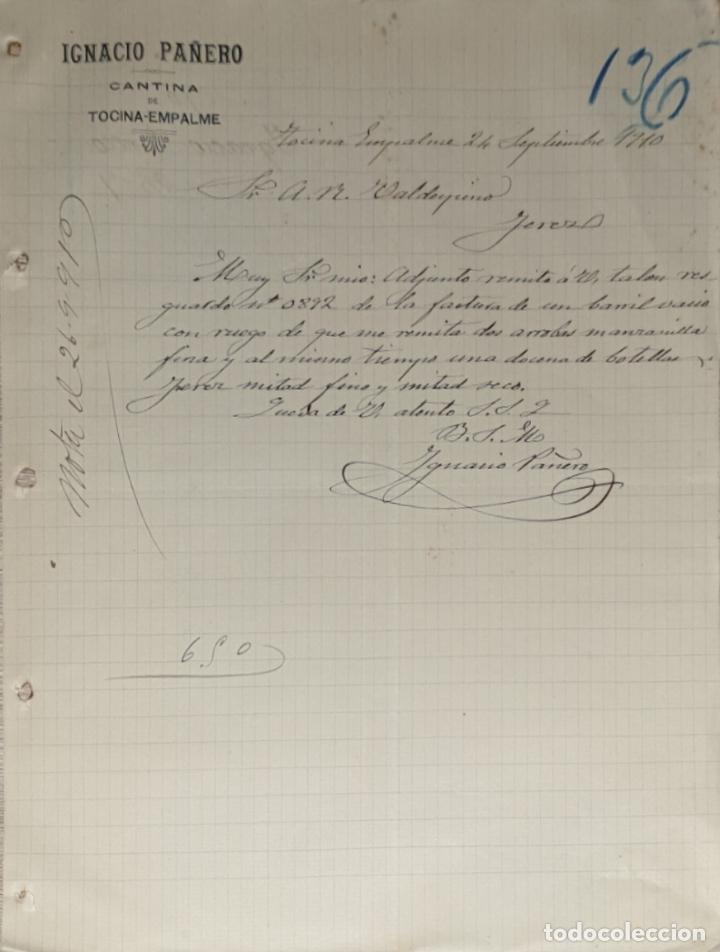 IGNACIO PAÑERO
CANTINA
DE
TOCINA-EMPALME
136
Tocina Empalme 24 Septiembre 1910
Sr. A. R. Valdespino
Jerez
Muy Sr. mio: Adjunto remito á V. talon res
guardo nº 0892 de la factura de un barril vacio
con ruego de que me remita dos arrobas manzanilla
fina y al mismo tiempo una docena de botellas
Jerez mitad fino y mitad seco.
Queda de V. atento S. S. Q
B. S. M
Ignacio Pañero
Nota el 26-9-910
650
todocoleccion.net